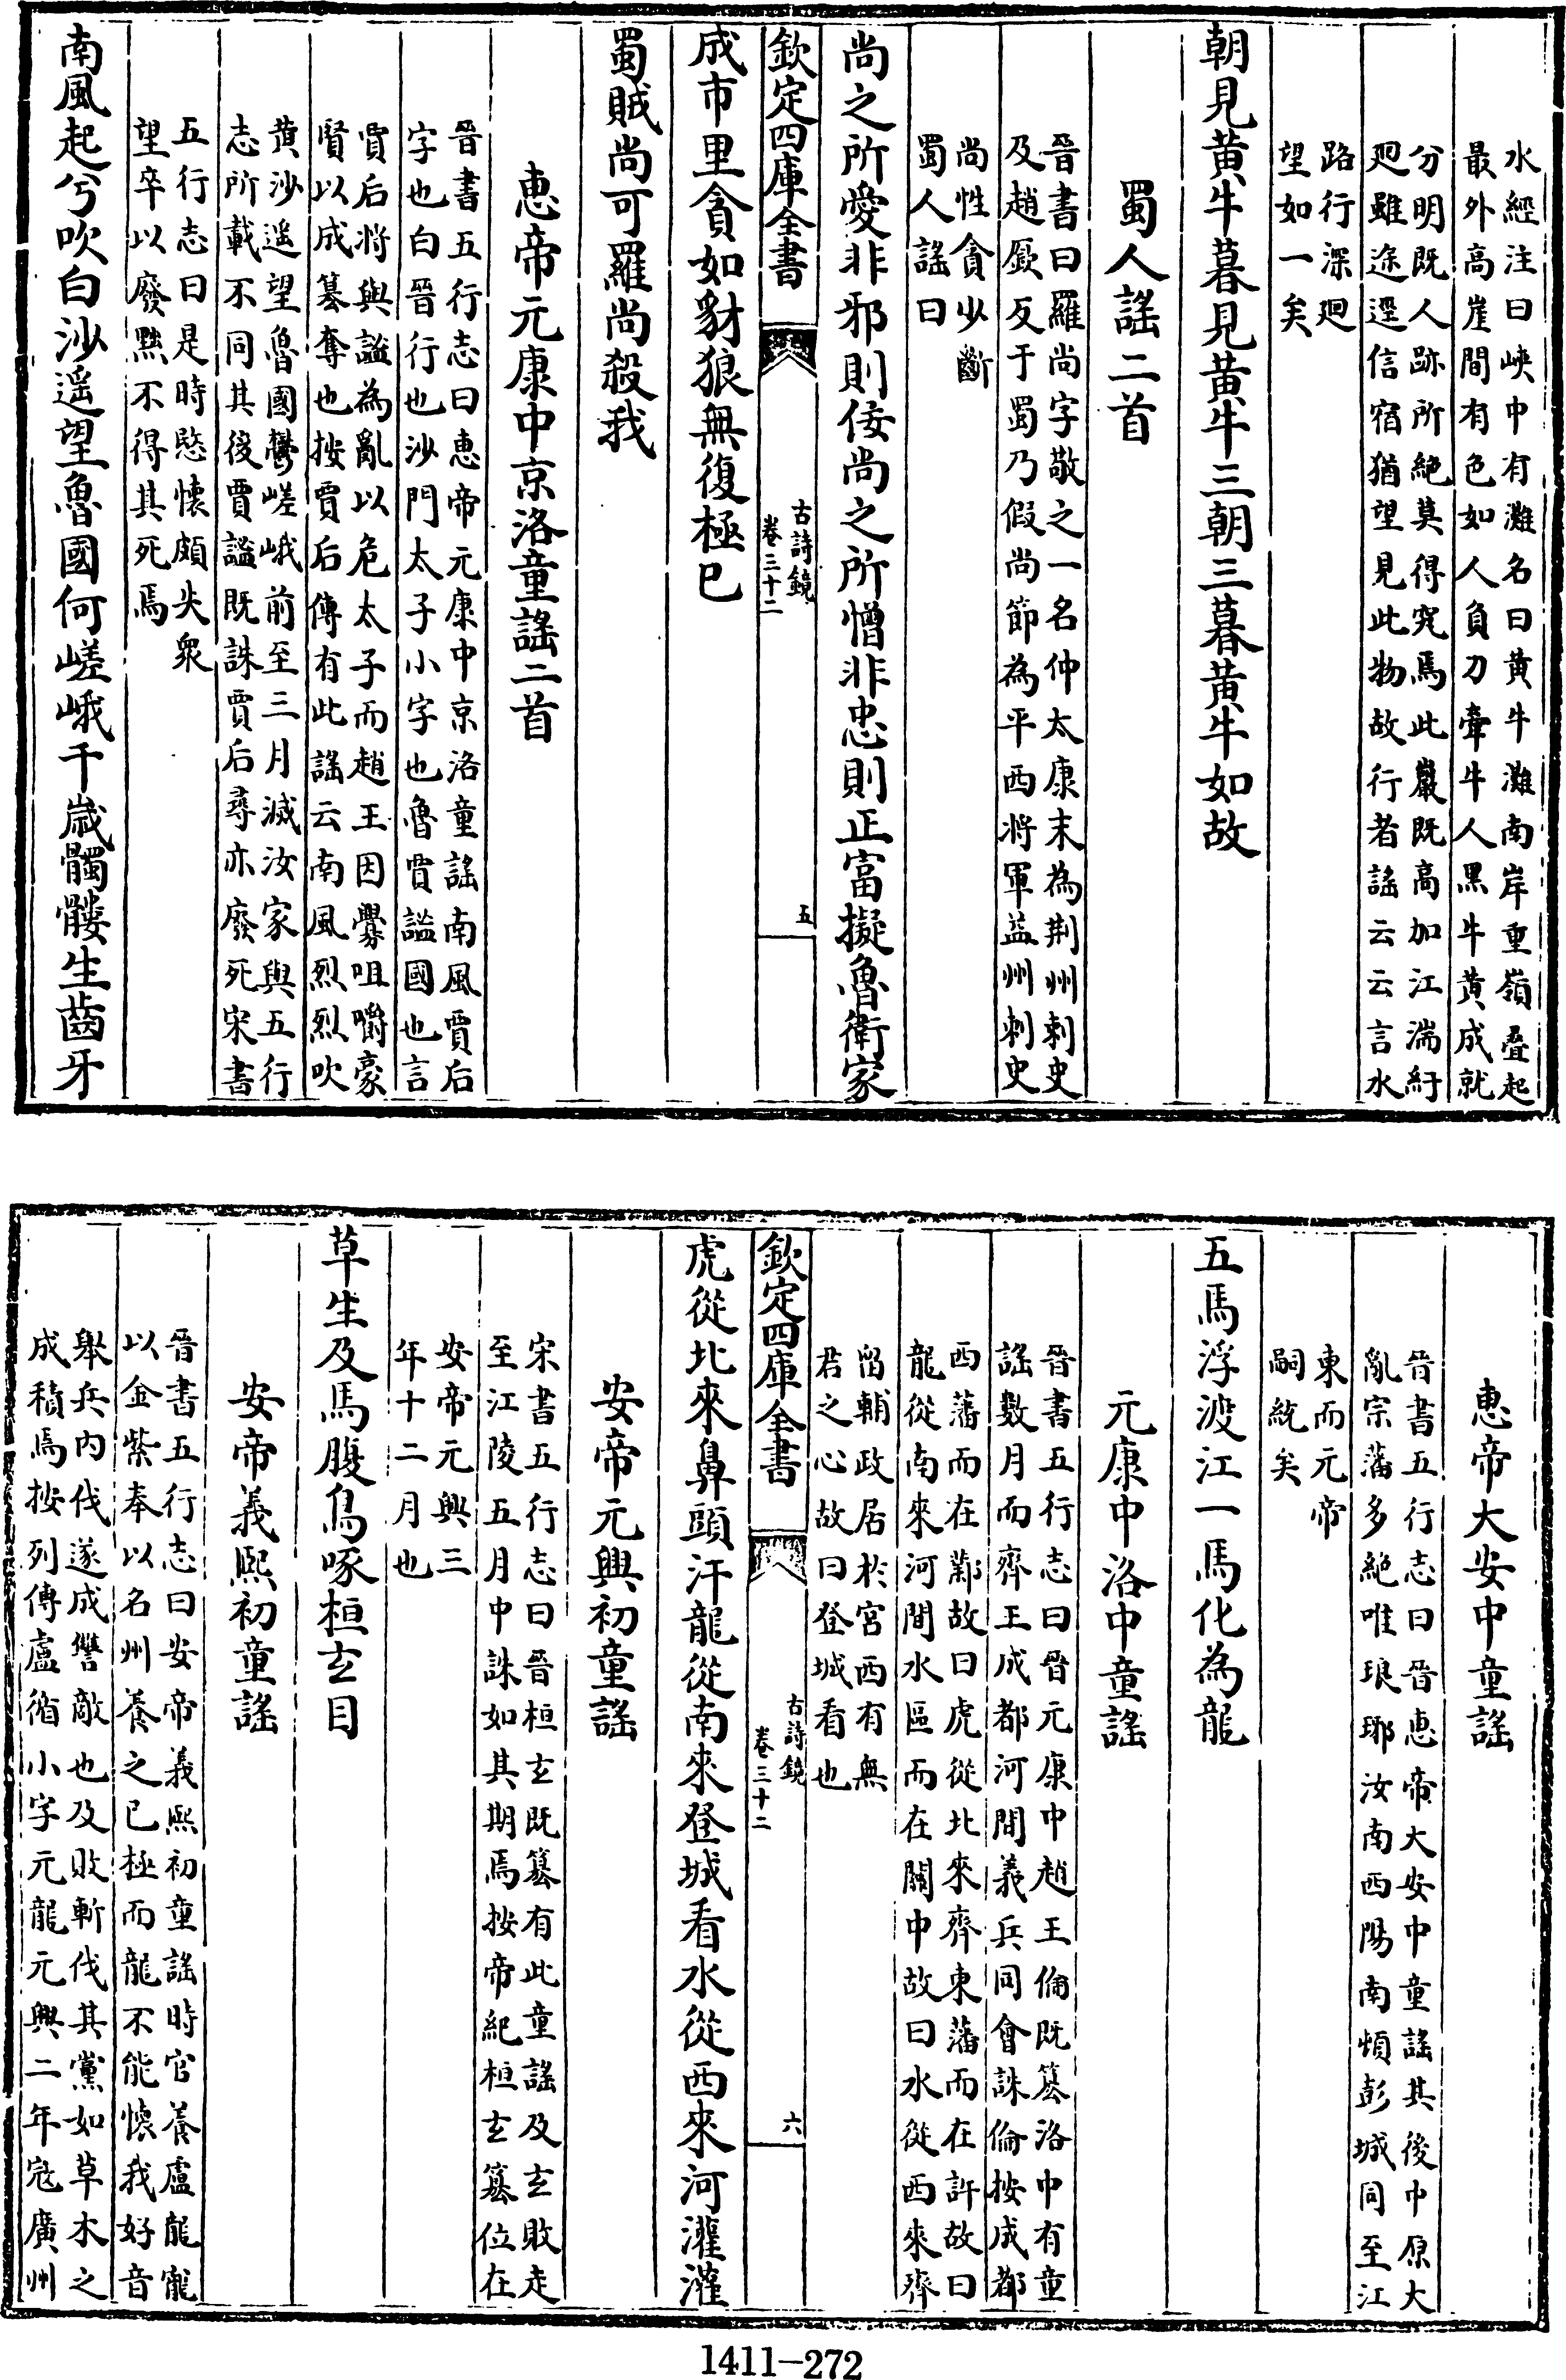 水經注曰峽中有灘名曰黄牛灘南岸重嶺疊起
最外高崖間有色如人負刀牽牛人黒牛黄成就
分明既人跡所絶莫得究焉此巖既高加江湍紆
廻雖途逕信宿猶望見此物故行者謡云云言水
路行深廻
望如一矣
朝見黄牛暮見黄牛三朝三暮黄牛如故
蜀人謡二首
晉書曰羅尚字敬之一名仲太康末為荆州刺史
及趙廞反于蜀乃假尚節為平西將軍益州刺史
尚性貪少斷
蜀人謡曰
尚之所愛非邪則佞尚之所憎非忠則正富擬魯衛家
欽定四庫全書
古詩鏡
卷三十二
五
成市里貪如豺狼無復極已
蜀賊尚可羅尚殺我
惠帝元康中京洛童謡二首
晉書五行志曰惠帝元康中京洛童謡南風賈后
字也白晉行也沙門太子小字也魯賈謐國也言
賈后將與謐為亂以危太子而趙王因釁咀嚼豪
賢以成簒奪也按賈后傳有此謡云南風烈烈吹
黄沙遥望魯國鬱嵯峨前至三月滅汝家與五行
志所載不同其後賈謐既誅賈后尋亦廢死宋書
五行志曰是時愍懷頗失衆
望卒以廢黜不得其死焉
南風起兮吹白沙遥望魯國何嵯峨千歳髑髏生齒牙
惠帝大安中童謡
晉書五行志曰晉惠帝大安中童謡其後中原大
亂宗藩多絶唯琅琊汝南西陽南頓彭城同至江
東而元帝
嗣統矣
五馬浮渡江一馬化為龍
元康中洛中童謡
晉書五行志曰晉元康中趙王倫既簒洛中有童
謡數月而齊王成都河間義兵同會誅倫按成都
西藩而在鄴故曰虎從北來齊東藩而在許故曰
龍從南來河間水區而在關中故曰水從西來齊
留輔政居於宮西有無
君之心故曰登城看也
欽定四庫全書
古詩鏡
卷三十二
六
虎從北來鼻頭汗龍從南來登城看水從西來河灌灌
安帝元興初童謡
宋書五行志曰晉桓玄既簒有此童謡及玄敗走
至江陵五月中誅如其期焉按帝紀桓玄簒位在
安帝元興三
年十二月也
草生及馬腹烏啄桓玄目
安帝義熙初童謡
晉書五行志曰安帝義熙初童謡時官養盧龍寵
以金紫奉以名州養之已極而龍不能懷我好音
舉兵内伐遂成讐敵也及敗斬伐其黨如草木之
成積焉按列傳盧循小字元龍元興二年寇廣州
1411-272